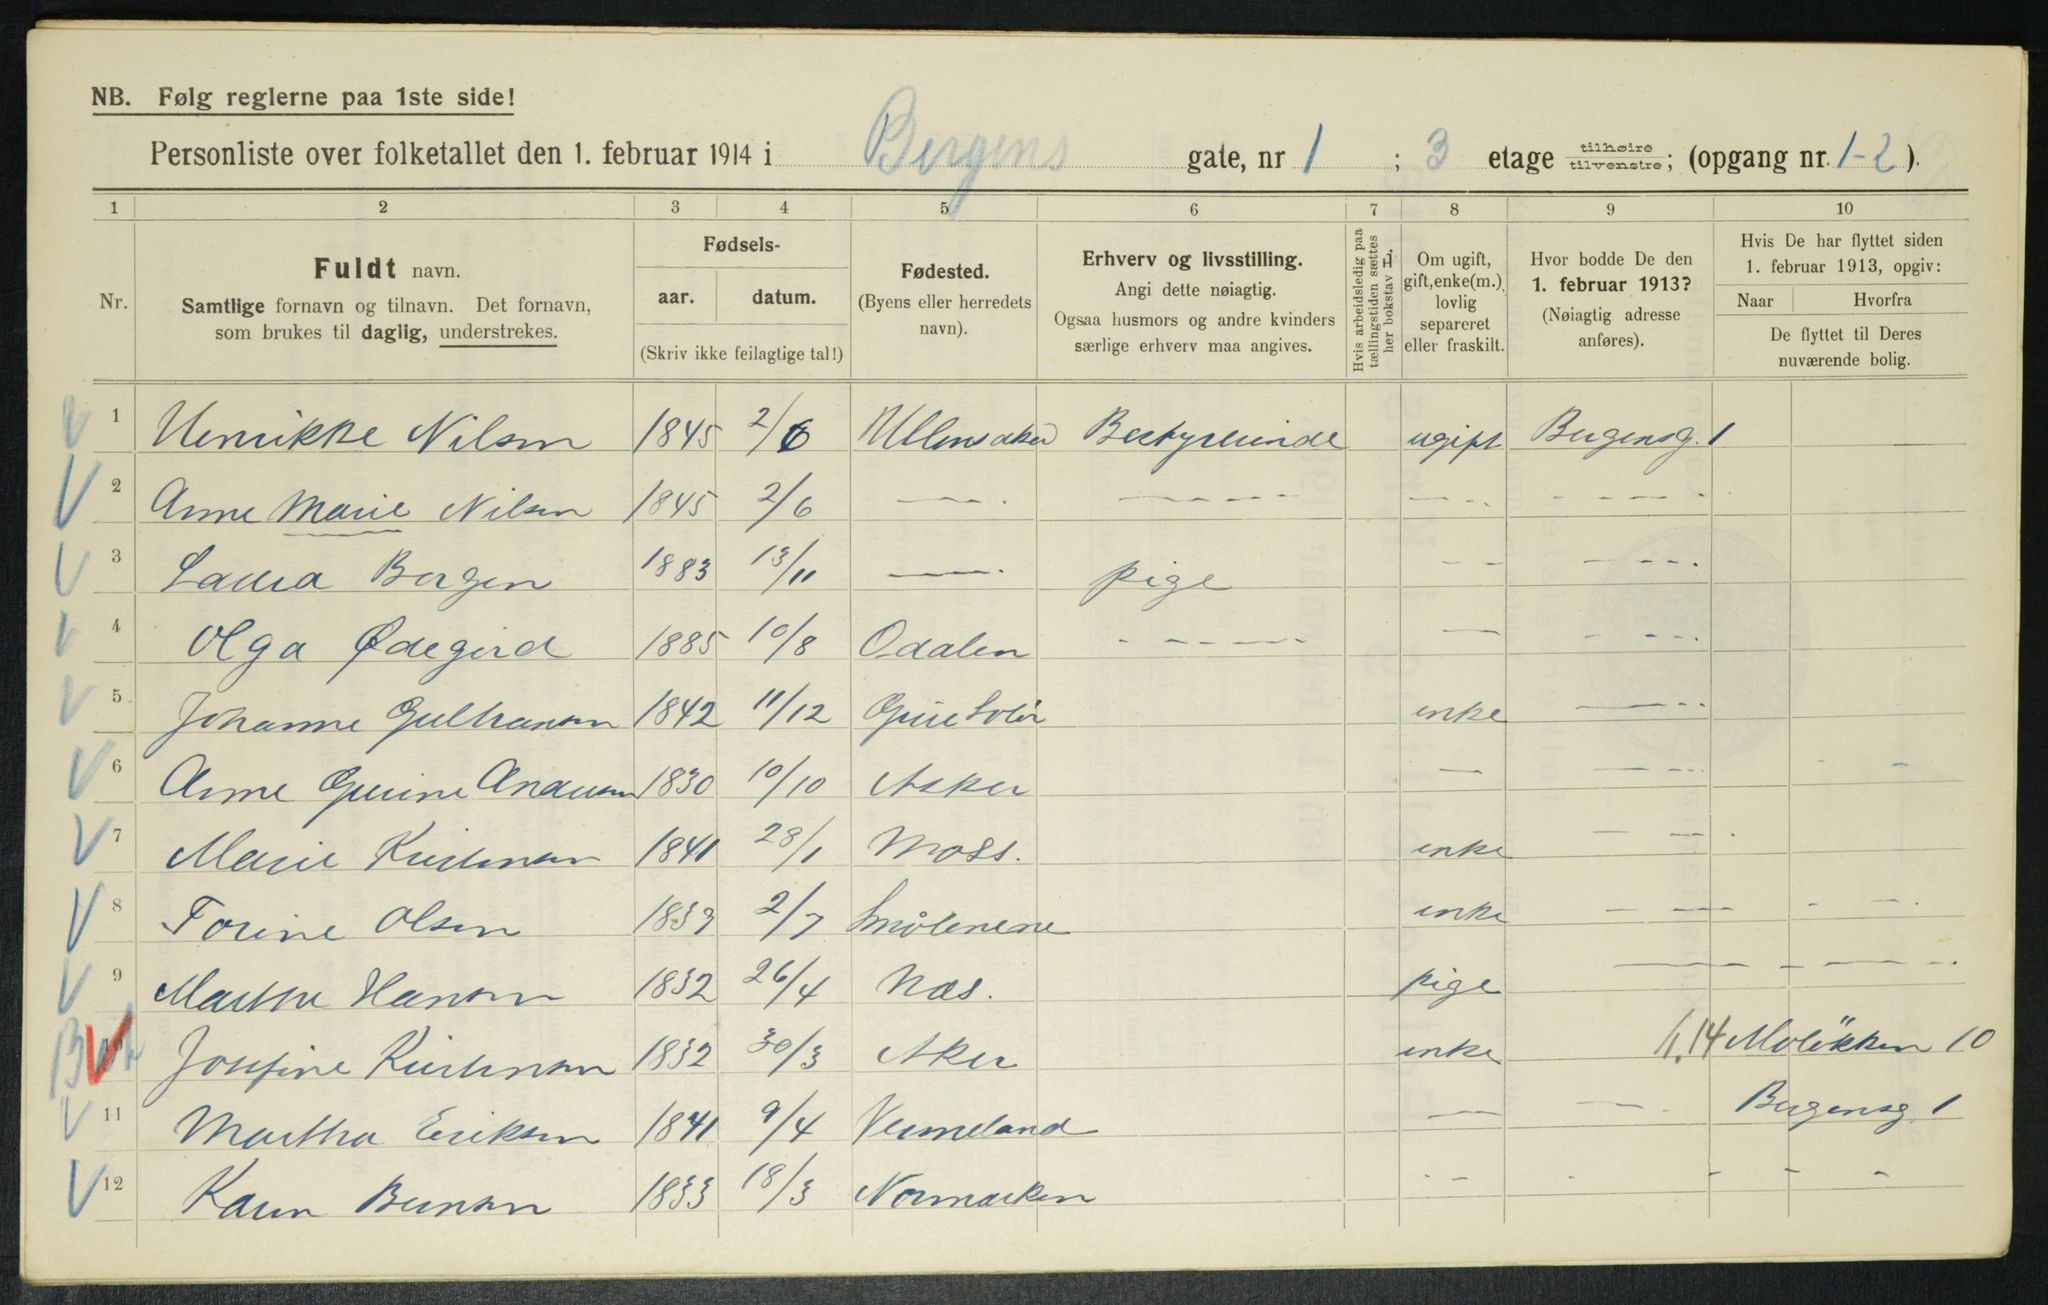 NB. Følg reglerne paa 1ste side!
Personliste over folketallet den 1. februar 1914 i Bergens gate, nr 1 ; 3 etage tilhøire tilvenstre; (opgang nr. 1-2 ).
1 2 3 4 5 6 7 8 9 10
Nr.
Fuldt navn.
Samtlige fornavn og tilnavn. Det fornavn,
som brukes til daglig, understrekes.
Fødsels-
aar. datum.
(Skriv ikke feilagtige tal!)
Fødested.
(Byens eller herredets
navn).
Erhverv og livsstilling.
Angi dette nøiagtig.
Ogsaa husmors og andre kvinders
særlige erhverv maa angives.
Hvis arbeidsledig paa
tællingstiden sættes
her bokstav l.
Om ugift,
gift, enke(m.),
lovlig
separeret
eller fraskilt.
Hvor bodde De den
1. februar 1913?
(Nøiagtig adresse
anføres).
Hvis De har flyttet siden
1. februar 1913, opgiv:
Naar Hvorfra
De flyttet til Deres
nuværende bolig.
1 Henrikke Nilsen 1845 2/6 Ullensaker Bestyrerinde ugift Bergensg. 1
2 Anne Marie Nilsen 1845 2/6 — — — —
3 Laura Borgen 1883 13/11 — pige — —
4 Olga Ødegård 1885 10/8 Odalen — — —
5 Johanne Gulbransen 1842 11/12 Grue Solør enke —
6 Anne Gurine Andersen 1830 10/10 Asker — — —
7 Marie Kristensen 1841 28/1 Moss. enke —
8 Torine Olsen 1839 2/7 Smålenene enke — —
9 Marthe Hansen 1832 26/4 Næs. pige — —
10 Josefine Kristensen 1832 30/3 Aker enke 1.14 Møløkken 10
11 Martha Eriksen 1841 9/4 Vermeland — — Bergensg 1
12 Karen Bernsen 1833 18/3 Normarken — — —